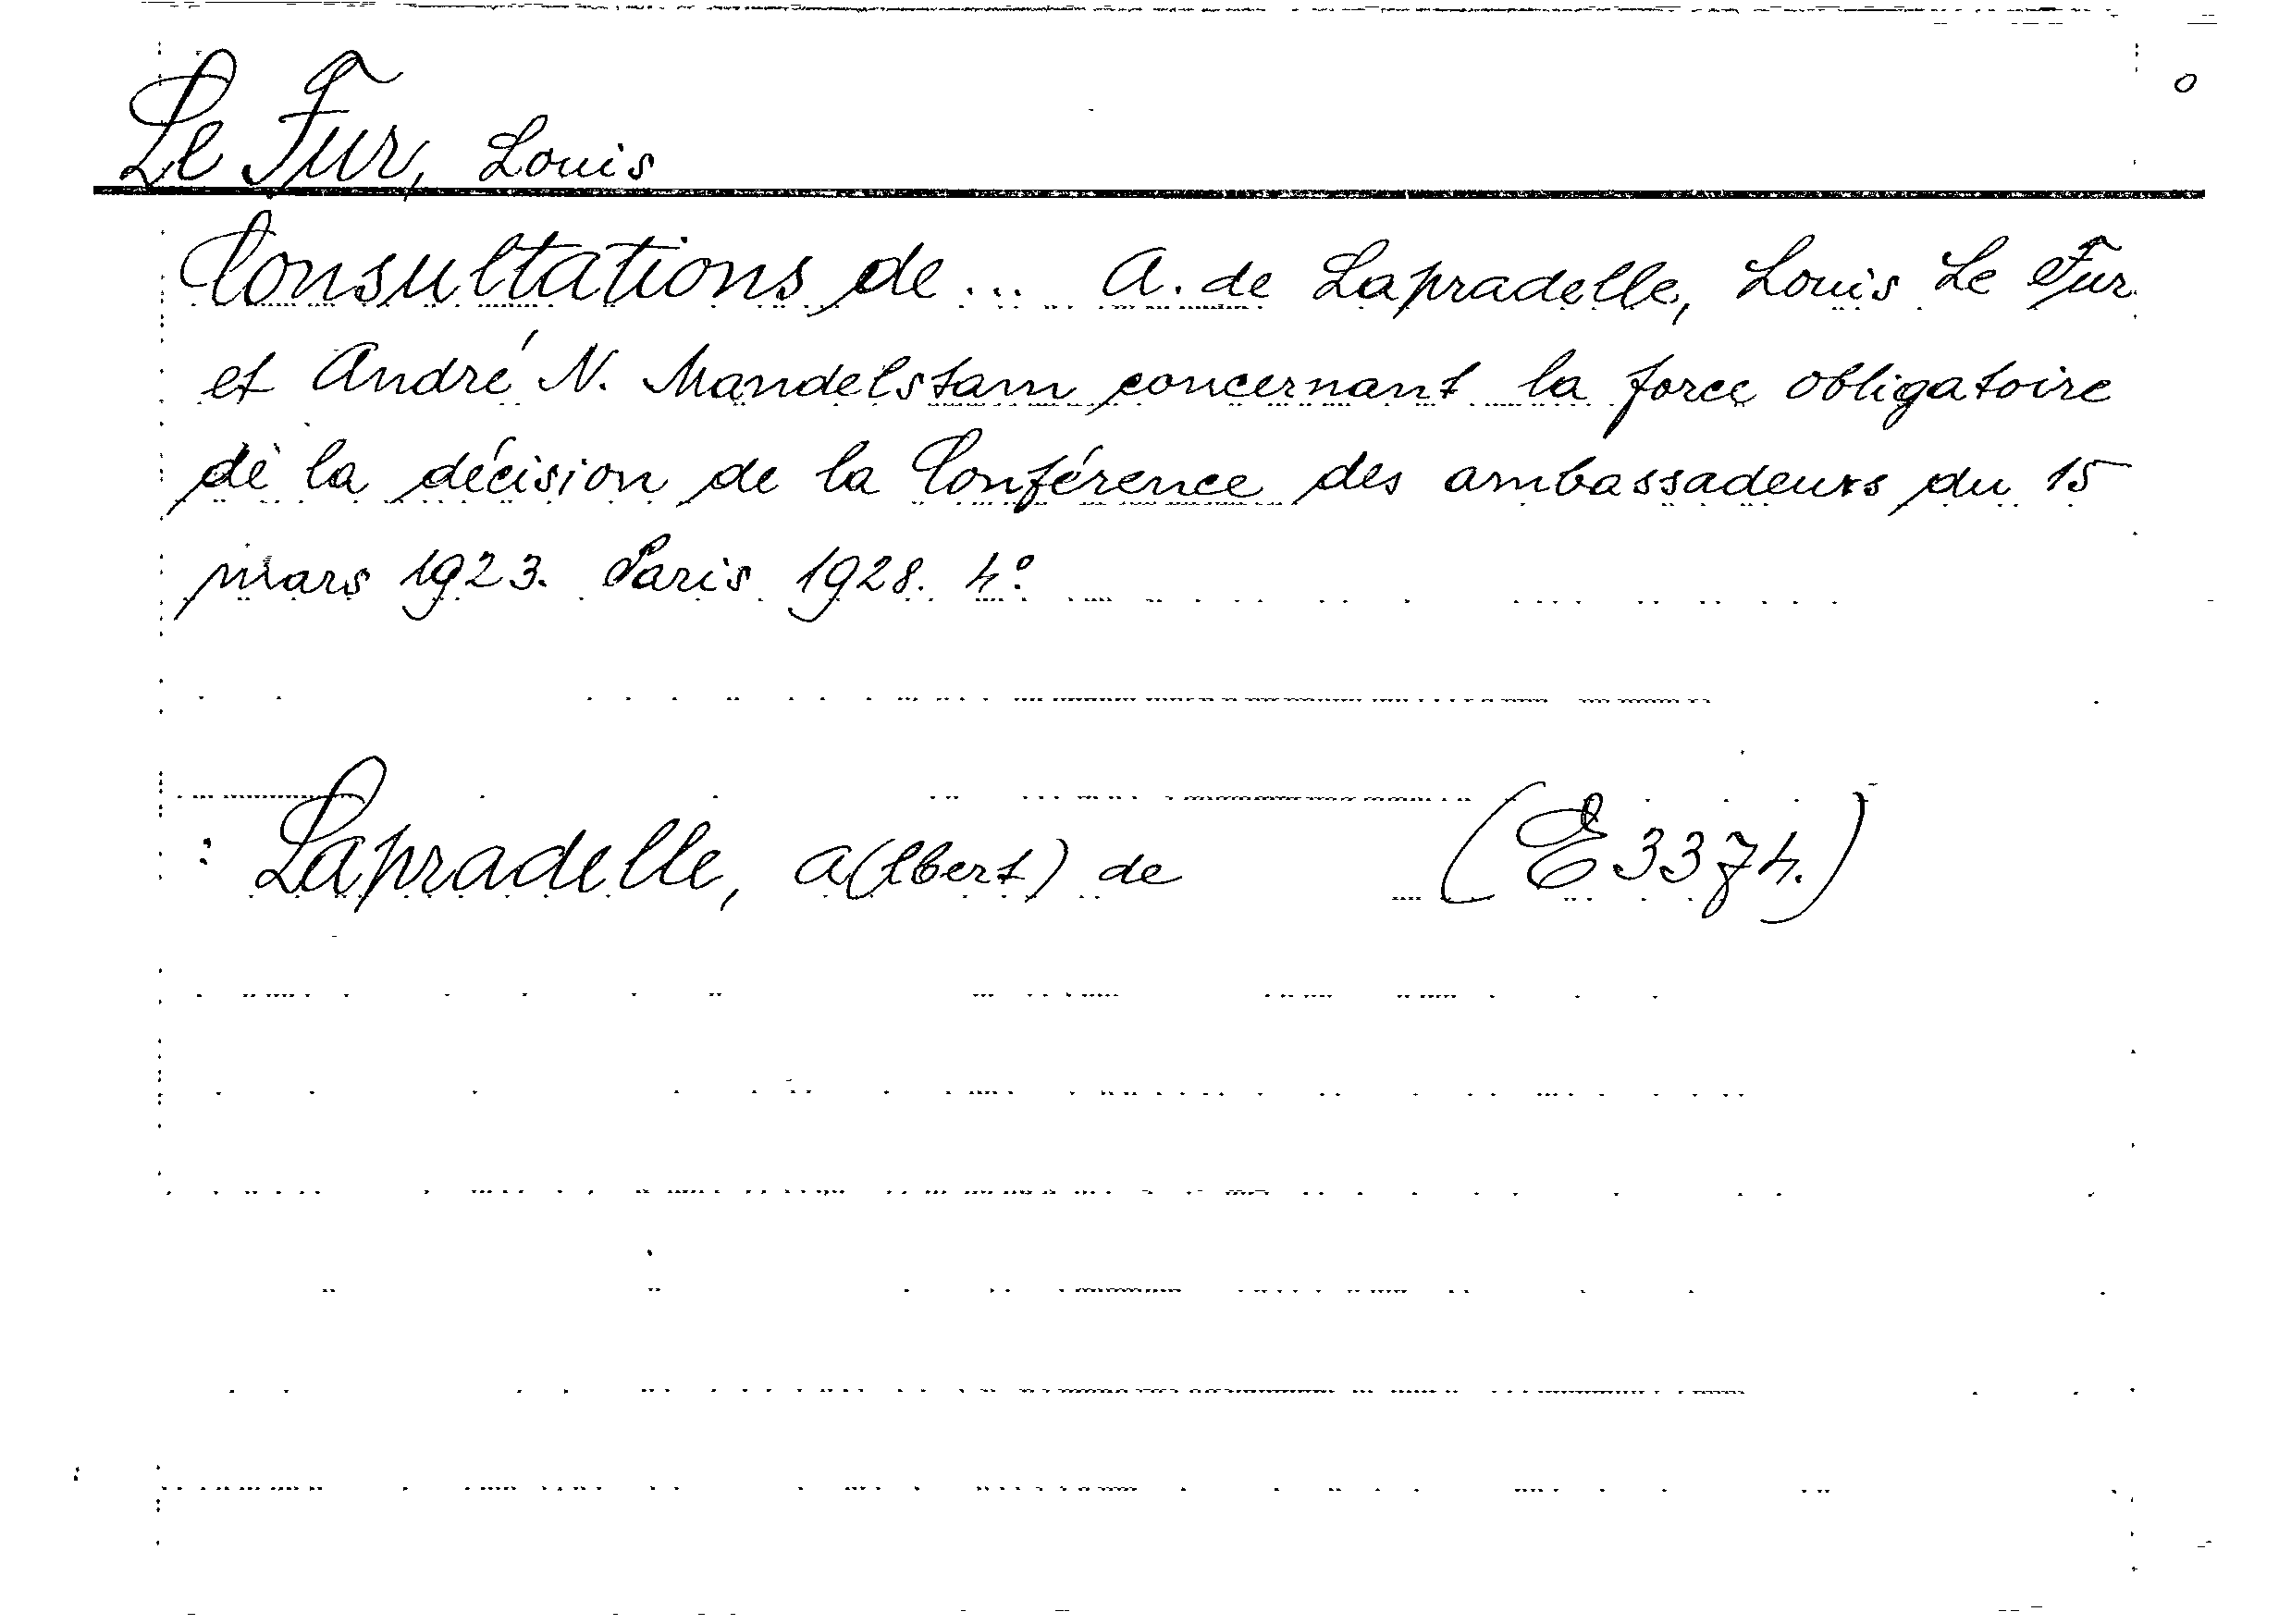 Le Fur, Louis
Consultations de... A. de Lapradelle, Louis Le Fur
et André N. Mandelstam concernant la force obligatoire
de la décision de la Conférence des ambassadeurs du 15
mars 1923. Paris 1928. 4°.
: Lapradelle, A(lbert) de (E 3374.)